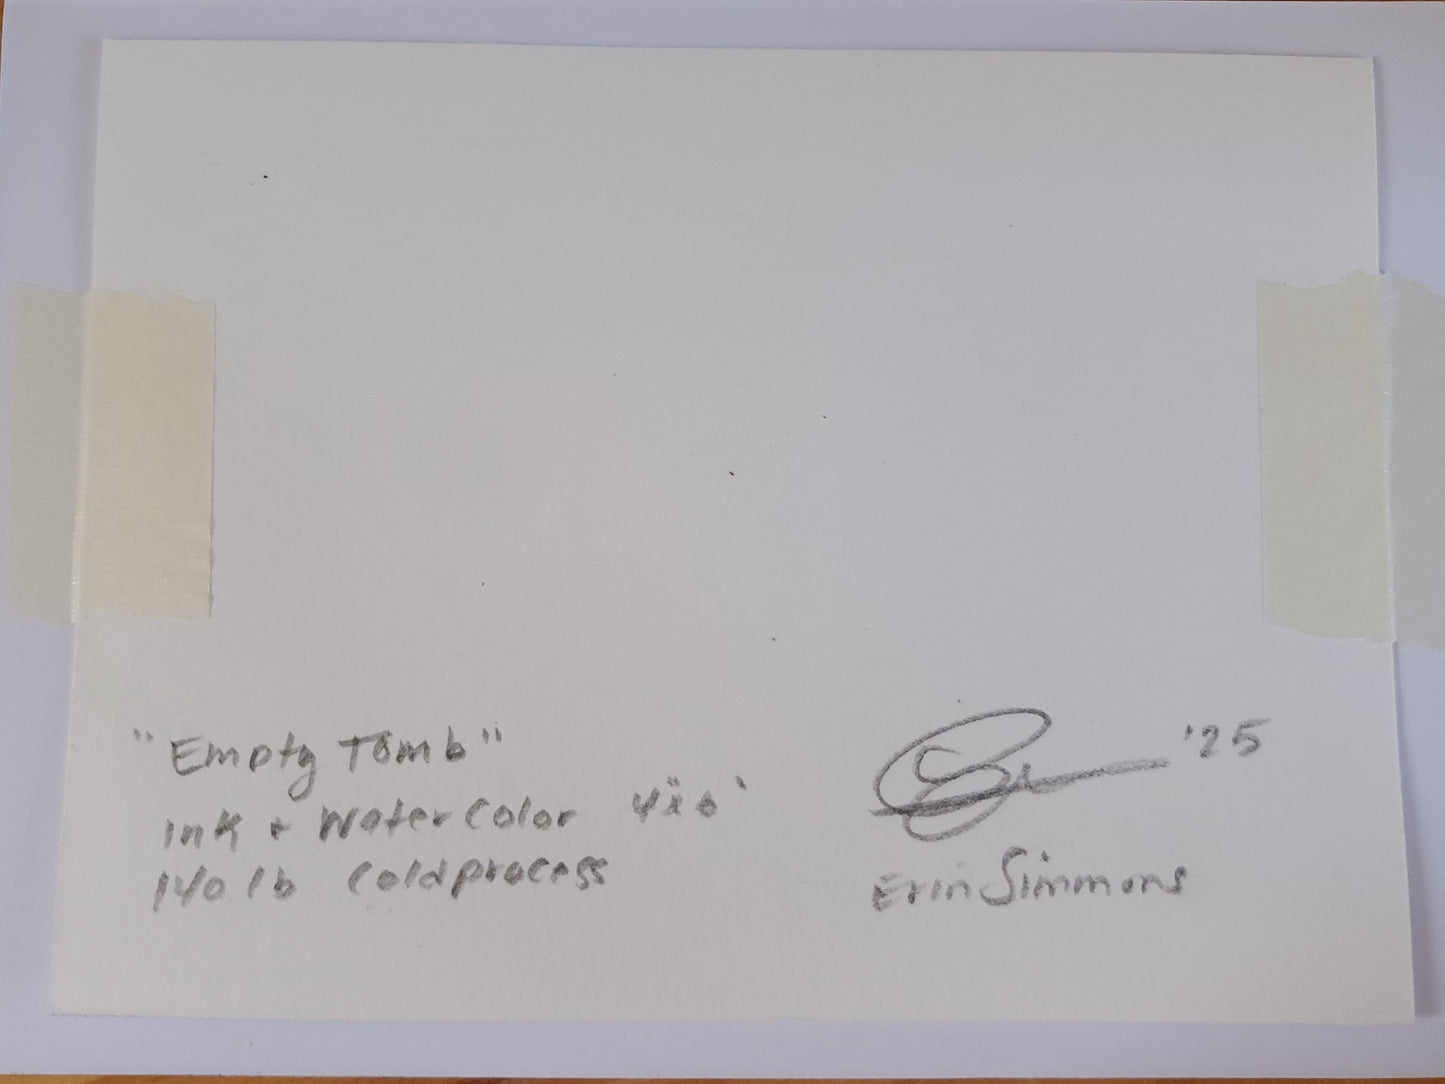 "Empty Tomb"
Ink + Watercolor 4"x6"
140 lb Coldprocess
'25
Erin Simmons